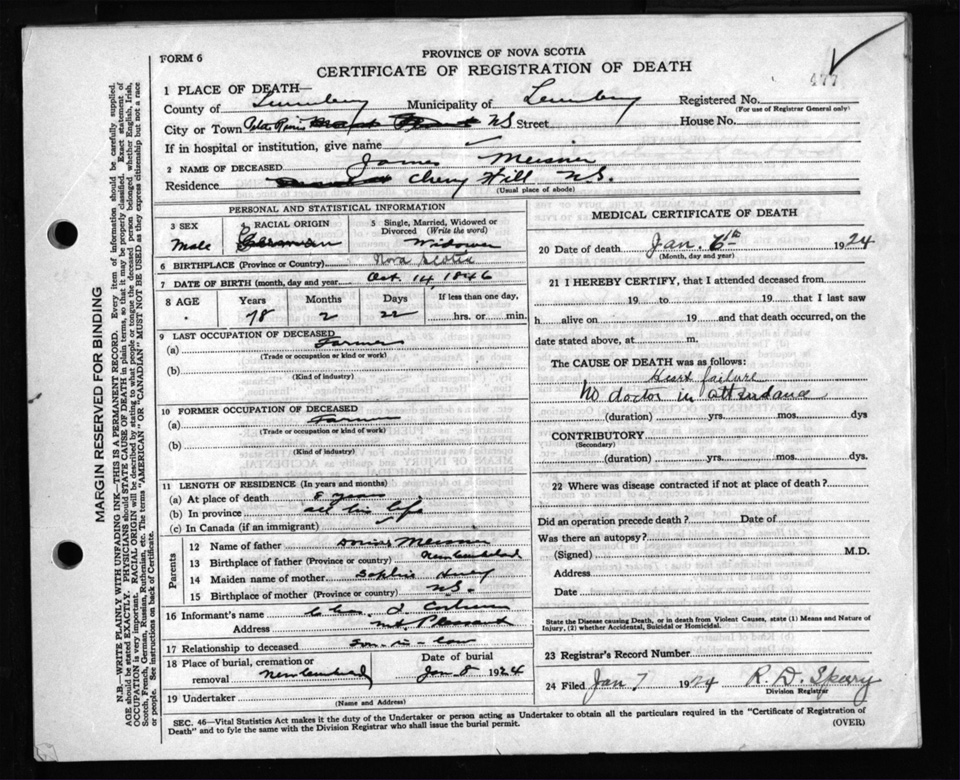 FORM 6
PROVINCE OF NOVA SCOTIA
CERTIFICATE OF REGISTRATION OF DEATH
477
1 PLACE OF DEATH—
County of Lunenburg Municipality of Lunenburg Registered No.
(For use of Registrar General only)
City or Town NS Street House No.
If in hospital or institution, give name
2 NAME OF DECEASED James Meisner
Residence Cherry Hill N.S.
(Usual place of abode)
PERSONAL AND STATISTICAL INFORMATION
3 SEX
Male
RACIAL ORIGIN
German
5 Single, Married, Widowed or Divorced (Write the word)
Widower
6 BIRTHPLACE (Province or Country) Nova Scotia
7 DATE OF BIRTH (month, day and year) Oct. 14, 1846
8 AGE Years Months Days If less than one day,
78 2 22 hrs. or min.
9 LAST OCCUPATION OF DECEASED
(a) Farmer
(Trade or occupation or kind or work)
(b)
(Kind of industry)
10 FORMER OCCUPATION OF DECEASED
(a) Farmer
(Trade or occupation or kind or work)
(b)
(Kind of industry)
11 LENGTH OF RESIDENCE (In years and months)
(a) At place of death 8 years
(b) In province all his life
(c) In Canada (if an immigrant)
Parents
12 Name of father Meisner
13 Birthplace of father (Province or country)
14 Maiden name of mother Sophia
15 Birthplace of mother (Province or country) N.S.
16 Informant's name
Address Mt. Pleasant
17 Relationship to deceased Son-in-law
18 Place of burial, cremation or removal Date of burial
Jan 8 1924
19 Undertaker
(Name and Address)
MEDICAL CERTIFICATE OF DEATH
20 Date of death Jan. 6th 1924
(Month, day and year)
21 I HEREBY CERTIFY, that I attended deceased from
19 to 19 that I last saw
h alive on 19 and that death occurred, on the
date stated above, at m.
The CAUSE OF DEATH was as follows:
Heart failure
No doctor in attendance
(duration) yrs. mos. dys
CONTRIBUTORY
(Secondary)
(duration) yrs. mos. dys.
22 Where was disease contracted if not at place of death?
Did an operation precede death? Date of
Was there an autopsy?
(Signed) M.D.
Address
Date
State the Disease causing Death, or in death from Violent Causes, state (1) Means and Nature of Injury, (2) whether Accidental, Suicidal or Homicidal.
23 Registrar's Record Number
24 Filed Jan 7 1924 R. D. Speary
Division Registrar
SEC. 46—Vital Statistics Act makes it the duty of the Undertaker or person acting as Undertaker to obtain all the particulars required in the "Certificate of Registration of
Death" and to fyle the same with the Division Registrar who shall issue the burial permit.
(OVER)
MARGIN RESERVED FOR BINDING
N.B.—WRITE PLAINLY WITH UNFADING INK—THIS IS A PERMANENT RECORD. Every item of information should be carefully supplied.
AGE should be stated EXACTLY. PHYSICIANS should STATE CAUSE OF DEATH in plain terms, so that it may be properly classified. Exact statement of
OCCUPATION is very important. RACIAL ORIGIN will be described by stating to what people or tongue the deceased person belonged whether English, Irish,
Scotch, French, German, Russian, Ruthenian, etc. The terms "AMERICAN" or "CANADIAN" MUST NOT BE USED as they express citizenship but not a race
or people. See instructions on back of Certificate.